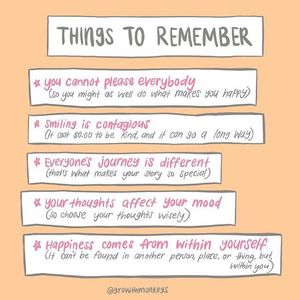 THINGS TO REMEMBER
★ you cannot please everybody
(so you might as well do what makes you happy)
★ smiling is contagious
(it cost $0.00 to be kind, and it can go a long way)
★ Everyone's journey is different
(that's what makes your story so special)
★ your thoughts affect your mood
(so choose your thoughts wisely)
★ Happiness comes from within yourself
(it can't be found in another person, place, or thing, but
within you)
@growthmonkeys